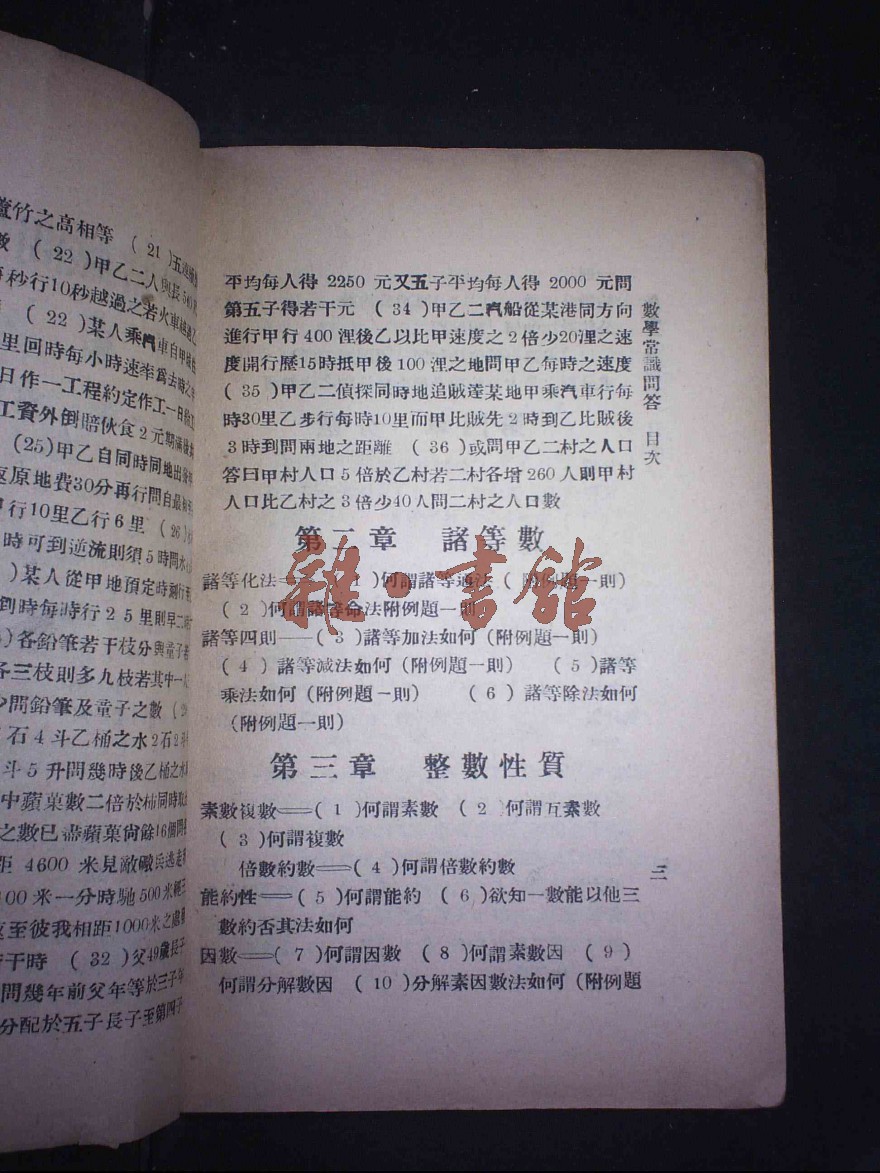 蘆竹之高相等 (21)五
數 (22)甲乙二人
秒行10秒越過之若火車越過
(22)某人乘汽車自甲地
里回時每小時速率爲去時之
日作一工程約定作工一日
工資外倒賠伙食2元期滿後
(25)甲乙自同時同地出
返原地費30分再行問自最初
行10里乙行6里 (26)
時可到逆流則須5時問水
)某人從甲地預定時刻行
倒時每時行25里則早二時
)各鉛筆若干枝分與童子若
各三枝則多九枝若其中一人
問鉛筆及童子之數
石4斗乙桶之水2石2斗
斗5升問幾時後乙桶之水
中蘋菓數二倍於柿同時取出
之數已盡蘋菓尙餘16個問
距 4600 米見敵礮兵逃走
00米一分時馳500米
至彼我相距1000米之處
若干時 (32)父49歲長子
問幾年前父年等於三子年
分配於五子長子至第四子
平均每人得 2250 元又五子平均每人得 2000 元問
第五子得若干元 (34)甲乙二汽船從某港同方向
進行甲行 400 浬後乙以比甲速度之2倍少20浬之速
度開行歷15時抵甲後 100 浬之地問甲乙每時之速度
(35)甲乙二偵探同時地追賊達某地甲乘汽車行每
時30里乙步行每時10里而甲比賊先2時到乙比賊後
3時到問兩地之距離 (36)或問甲乙二村之人口
答曰甲村人口5倍於乙村若二村各增 260 人則甲村
人口比乙村之3倍少40人問二村之人口數
第二章 諸等數
諸等化法——(1)何謂諸等通法(附例題一則)
(2)何謂諸等命法附例題一則)
諸等四則——(3)諸等加法如何(附例題一則)
(4)諸等減法如何(附例題一則) (5)諸等
乘法如何(附例題一則) (6)諸等除法如何
(附例題一則)
第三章 整數性質
素數複數——(1)何謂素數 (2)何謂互素數
(3)何謂複數
倍數約數——(4)何謂倍數約數
能約性——(5)何謂能約 (6)欲知一數能以他三
數約否其法如何
因數——(7)何謂因數 (8)何謂素數因 (9)
何謂分解數因 (10)分解素因數法如何(附例題
數學常識問答 目次
三
雜·書館